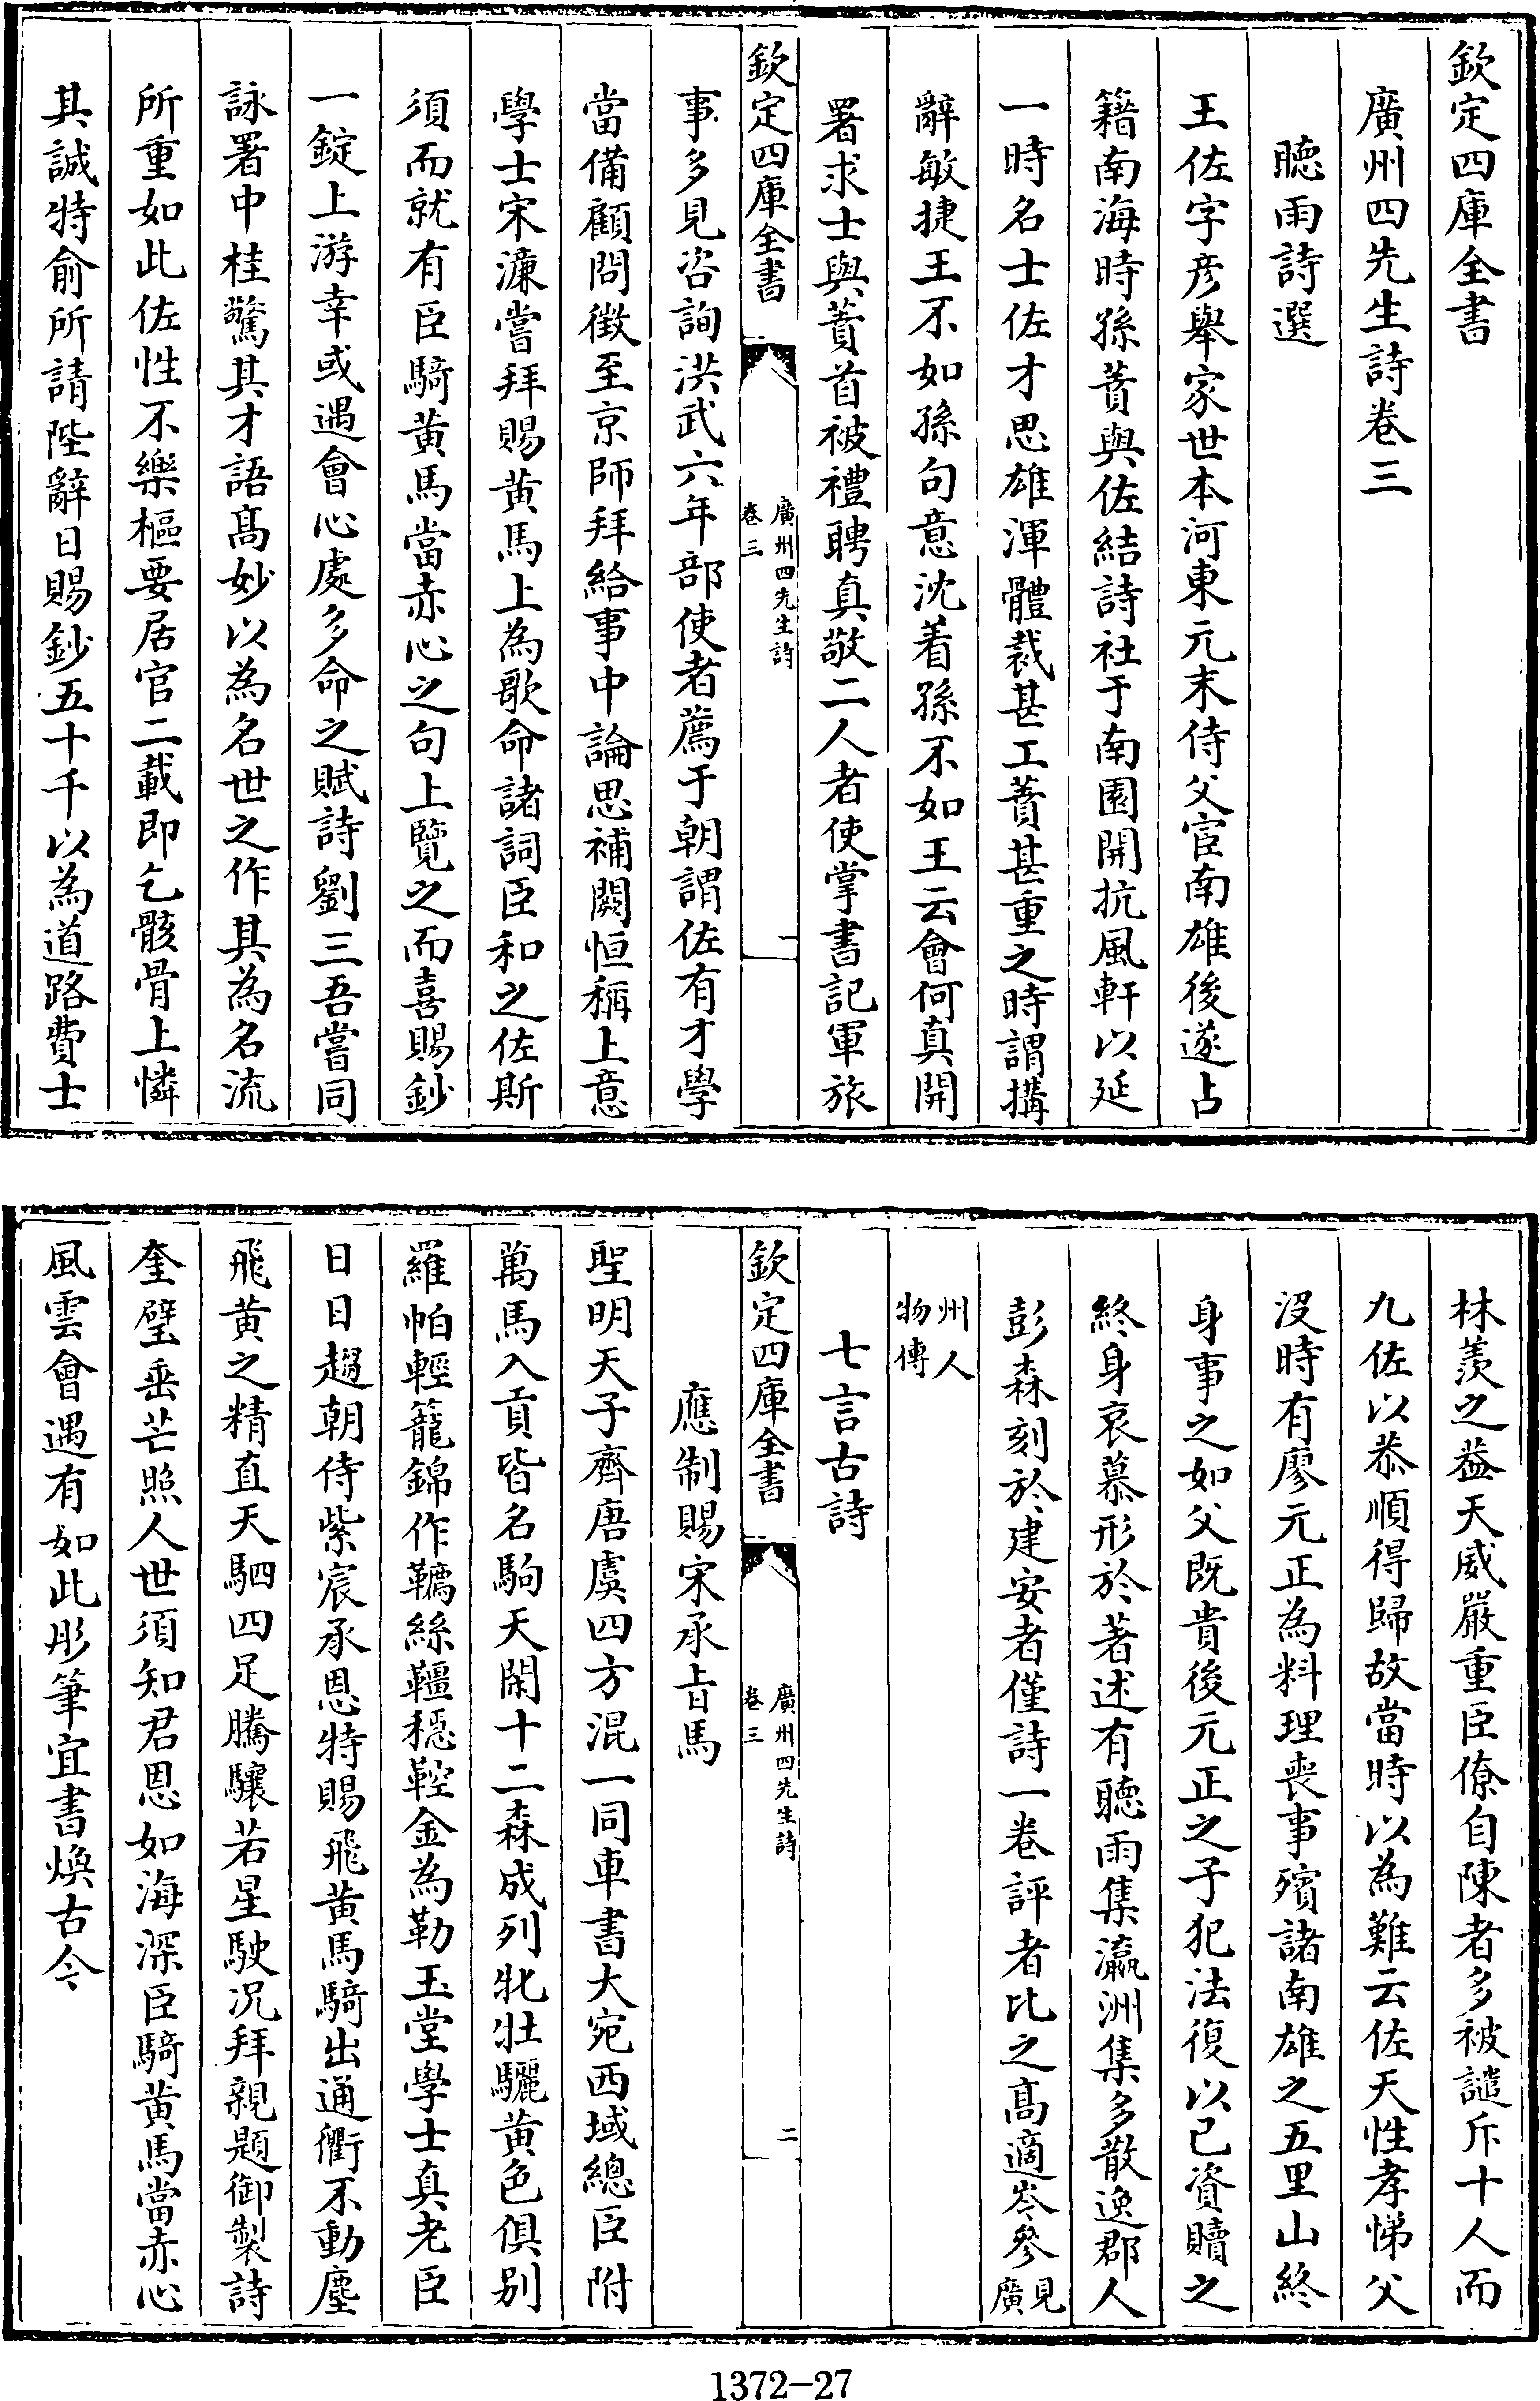 欽定四庫全書
廣州四先生詩卷三
聽雨詩選
王佐字彥舉家世本河東元末侍父宦南雄後遂占
籍南海時孫蕡與佐結詩社于南園開抗風軒以延
一時名士佐才思雄渾體裁甚工蕡甚重之時謂搆
辭敏捷王不如孫句意沈着孫不如王云會何真開
署求士與蕡首被禮聘真敬二人者使掌書記軍旅
欽定四庫全書
廣州四先生詩
卷三
一
事多見咨詢洪武六年部使者薦于朝謂佐有才學
當備顧問徵至京師拜給事中論思補闕恒稱上意
學士宋濂嘗拜賜黃馬上為歌命諸詞臣和之佐斯
須而就有臣騎黃馬當赤心之句上覽之而喜賜鈔
一錠上游幸或遇會心處多命之賦詩劉三吾嘗同
詠署中桂驚其才語高妙以為名世之作其為名流
所重如此佐性不樂樞要居官二載即乞骸骨上憐
其誠特俞所請陛辭日賜鈔五十千以為道路費士
林羨之益天威嚴重臣僚自陳者多被譴斥十人而
九佐以恭順得歸故當時以為難云佐天性孝悌父
沒時有廖元正為料理喪事殯諸南雄之五里山終
身事之如父既貴後元正之子犯法復以已資贖之
終身哀慕形於著述有聽雨集瀛洲集多散逸郡人
彭森刻於建安者僅詩一卷評者比之高適岑參見廣
州人物傳
七言古詩
欽定四庫全書
廣州四先生詩
卷三
二
應制賜宋承旨馬
聖明天子齊唐虞四方混一同車書大宛西域總臣附
萬馬入貢皆名駒天閑十二森成列牝壯驪黃色俱别
羅帕輕籠錦作韉絲韁穩鞚金為勒玉堂學士真老臣
日日趨朝侍紫宸承恩特賜飛黃馬騎出通衢不動塵
飛黃之精直天駟四足騰驤若星駛况拜親題御製詩
奎璧垂芒照人世須知君恩如海深臣騎黃馬當赤心
風雲會遇有如此彤筆宜書煥古今
1372-27